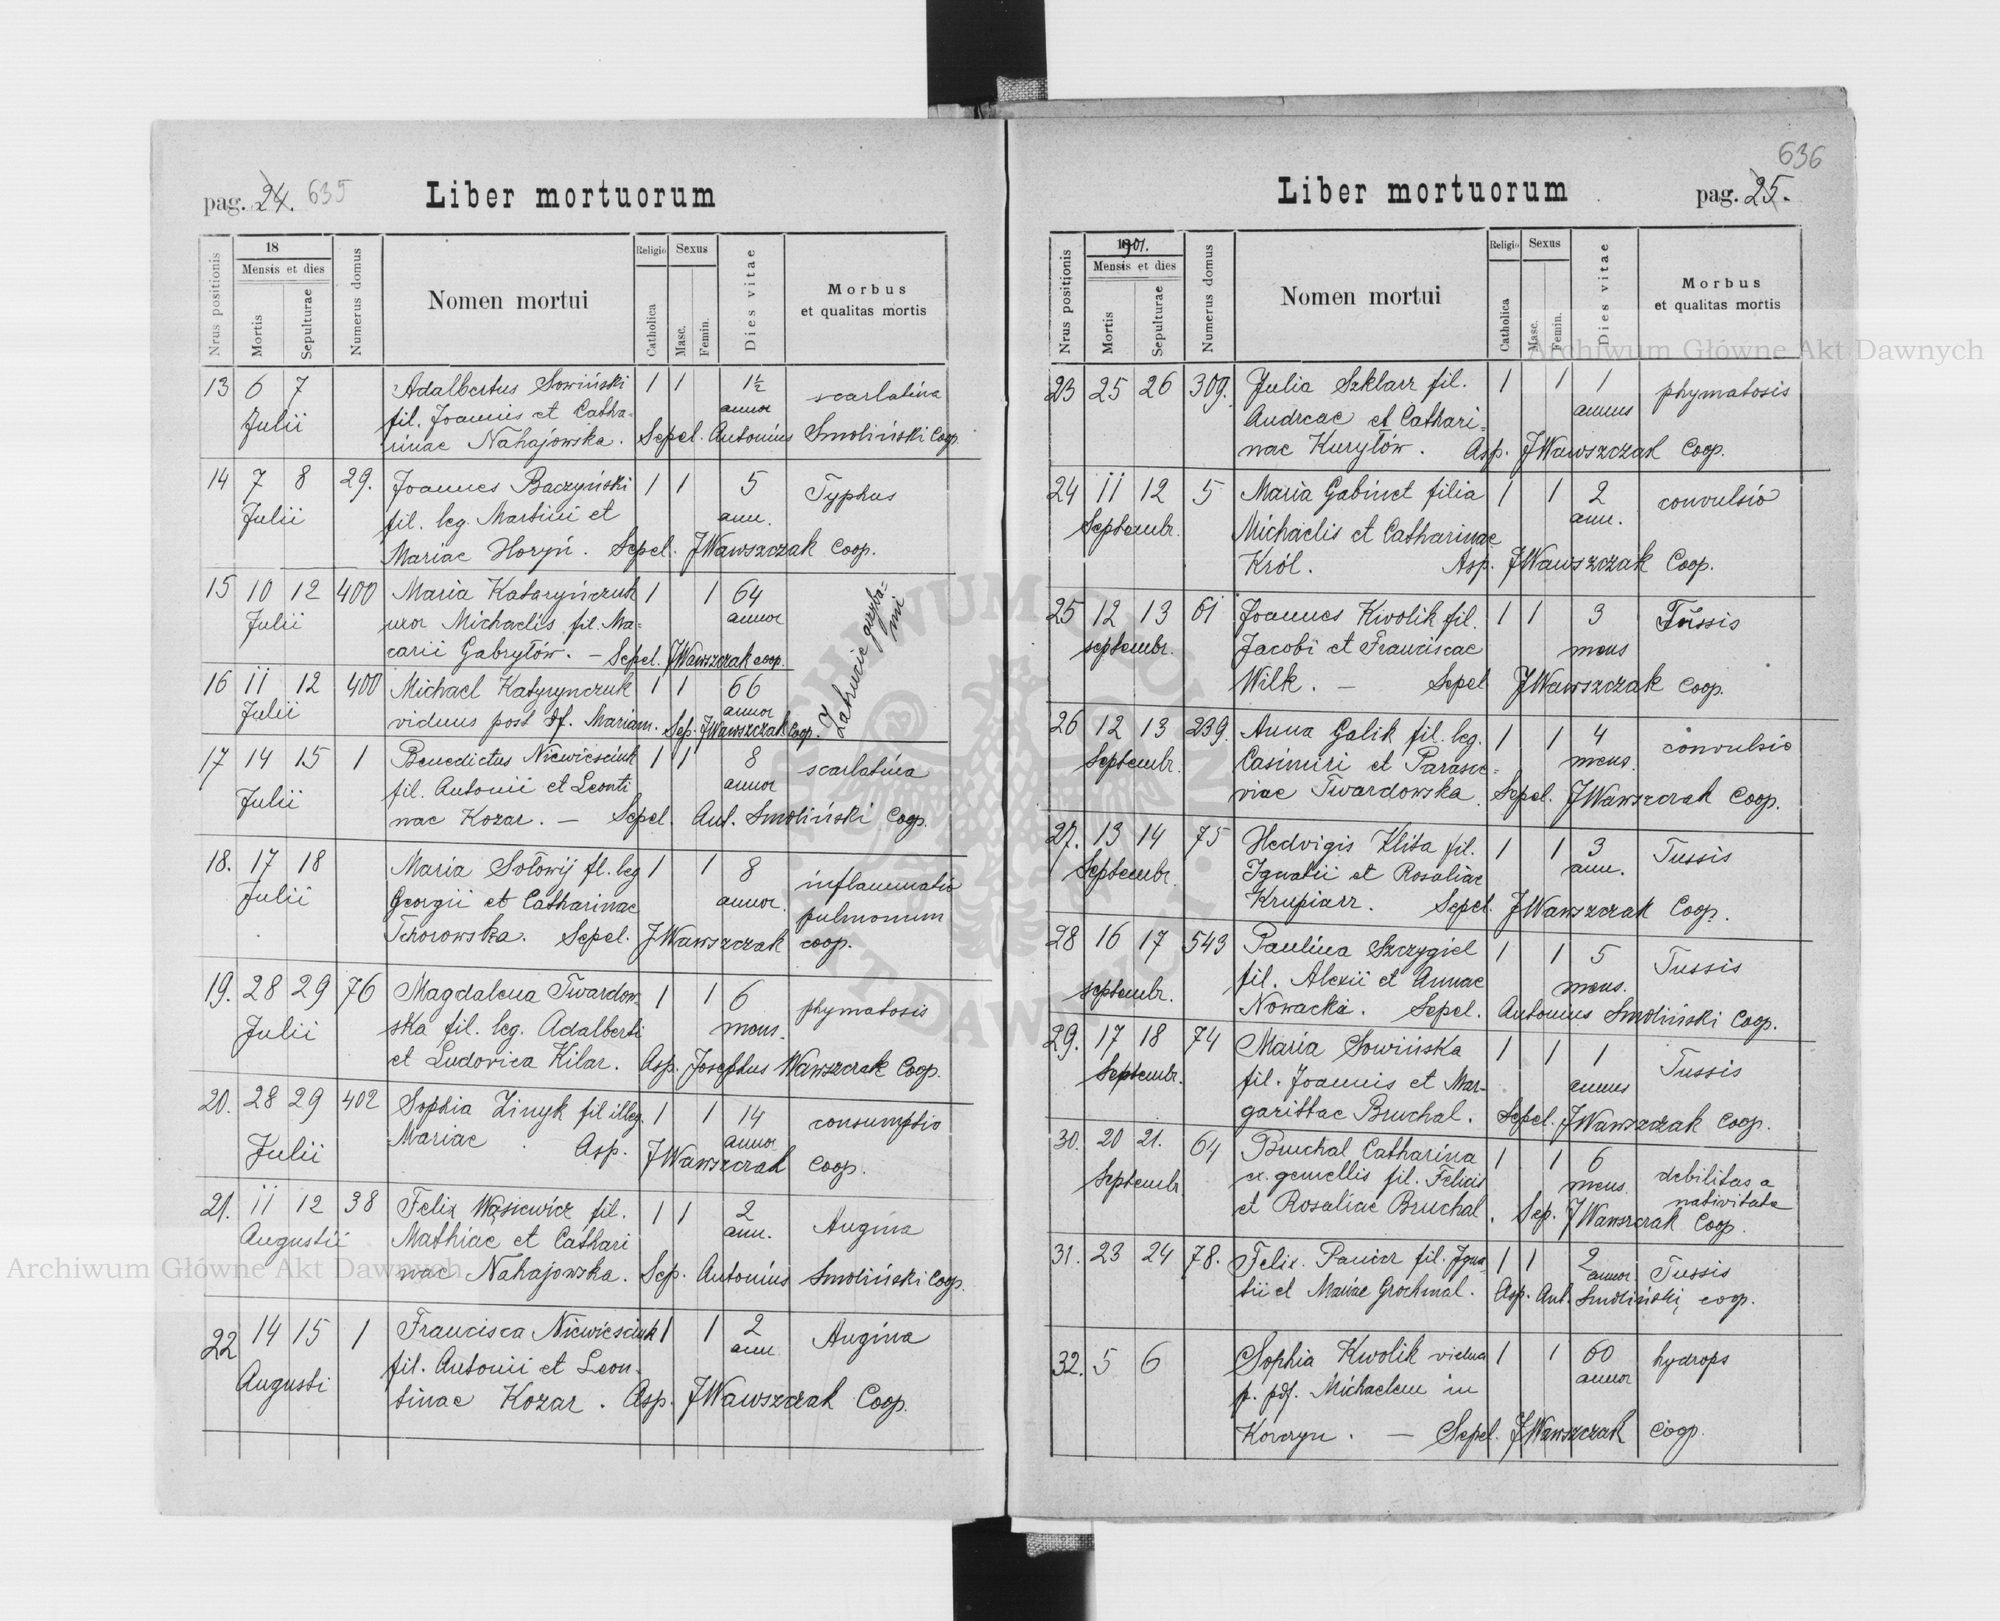 pag. 24. 635
Liber mortuorum
Nrus positionis
18
Mensis et dies
Mortis
Sepulturae
Numerus domus
Nomen mortui
Religio
Catholica
Sexus
Masc.
Femin.
Dies vitae
Morbus
et qualitas mortis
13 6 7 Adalbertus Sowiński 1 1 1½ scarlatina
Julii fil. Joannis et Catha- annor
rinae Nahajowska. Sepel. Antonius Smoliński Coop.
14 7 8 29. Joannes Baczyński 1 1 5 Typhus
Julii fil. leg. Martini et ann.
Mariae Horyń. Sepel. JWawszczak Coop.
15 10 12 400 Maria Kataryńczuk 1 1 64
Julii uxor Michaelis fil. Ma= annor
carii Gabryłów. – Sepel. JWawszczak coop.
Zatrucie grzyba=
mi
16 11 12 400 Michael Katyrynczuk 1 1 66
Julii viduus post df. Mariam. annor
Sep. JWawszczak Coop.
17 14 15 1 Benedictus Niewiesciuk 1 1 8 scarlatina
Julii fil. Antonii et Leonti annor
nae Kozar. – Sepel. Ant. Smoliński Coop.
18. 17 18 Maria Sołowij fl. leg 1 1 8 inflammatio
Julii Georgii et Catharinae annor. pulmonum
Tchorowska. Sepel. JWawszczak coop.
19. 28 29 76 Magdalena Twardow 1 1 6 phymatosis
Julii ska fil. leg. Adalberti mens.
et Ludovica Kilar. Asp. Josephus Wawszczak Coop.
20. 28 29 402 Sophia Zinyk fil illeg. 1 1 14 consumptio
Julii Mariae . Asp. annor
JWawszczak Coop.
21. 11 12 38 Felix Wąsiewicz fil. 1 1 2 Angina
Augustii Mathiae et Cathari ann.
nae Nahajowska. Sep. Antonius Smoliński Coop.
22 14 15 1 Francisca Niewiesciuk 1 1 2 Angina
Augusti fil. Antonii et Leon- ann
tinae Kozar. Asp. JWawszczak Coop.
636
Liber mortuorum
pag. 25.
Nrus positionis
1901.
Mensis et dies
Mortis
Sepulturae
Numerus domus
Nomen mortui
Religio
Catholica
Sexus
Masc.
Femin.
Dies vitae
Morbus
et qualitas mortis
23 25 26 309. Julia Szklarz fil. 1 1 1 phymatosis
Andreae et Cathari= annus
nae Kuryłów. Asp. JWawszczak Coop.
24 11 12 5 Maria Gabinet filia 1 1 2 convulsio
Septembr. Michaelis et Catharinae ann.
Król. Asp. JWawszczak Coop.
25 12 13 61 Joannes Kwolik fil. 1 1 3 Tussis
septembr. Jacobi et Franciscae mens
Wilk. – Sepel JWawszczak Coop.
26 12 13 239. Anna Galik fil. leg. 1 1 4 convulsio
Septembr. Casimiri et Parasce= mens.
viae Twardowska. Sepel. JWawszczak Coop.
27. 13 14 75 Hedvigis Klita fil. 1 1 3 Tussis
Septembr. Ignatii et Rosaliae ann.
Krupiarz. Sepel. JWawszczak Coop.
28 16 17 543 Paulina Szczygiel 1 1 5 Tussis
septembr. fil. Alexii et Annae mens.
Nowacka. Sepel. Antonius Smoliński Coop.
29. 17 18 74 Maria Sowińska 1 1 1 Tussis
Septembr. fil. Joannis et Mar- annus
garittae Bruchal. Sepel. JWawszczak Coop.
30. 20 21. 64 Bruchal Catharina 1 1 6 debilitas a
Septembr ex. gemellis fil. Felicis mens. nativitate
et Rosaliae Bruchal. Sep. JWawszczak Coop.
31. 23 24 78. Felix Panier fil. Igna- 1 1 2 Tussis
tii et Mariae Grochmal. annor
Asp. Ant. Smoliński, coop.
32. 5 6 Sophia Kwolik vidua 1 1 60 hydrops
p. pdf. Michaelem in annor
Korczyn. – Sepel. JWawszczak Coop.
Archiwum Główne Akt Dawnych
Archiwum Główne Akt Dawnych